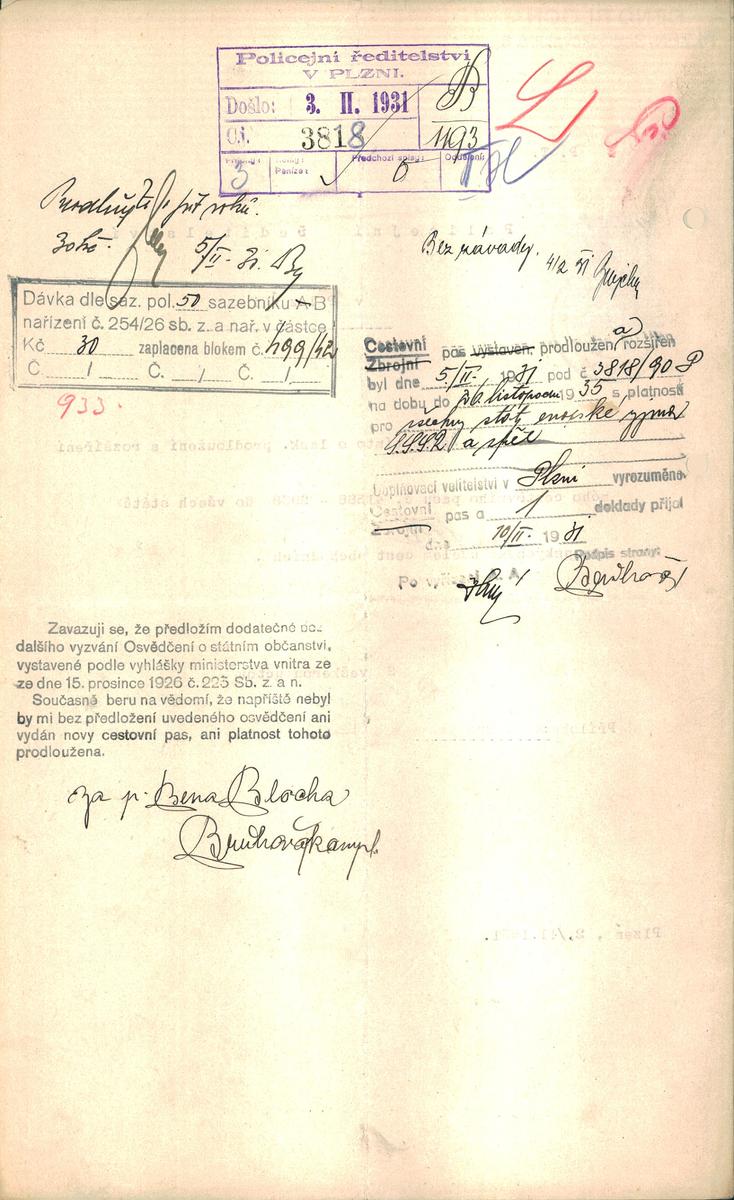 Policejní ředitelství
V PLZNI.
Došlo: 3. II. 1931
Č.j. 3818
1193
3 Peníze: Předchozí spisy: Oddělení:
pět roků.
5/II. 31.
Bez závady.
4/2 31
Dávka dle saz. pol. 50 sazebníku A B
nařízení č. 254/26 sb. z. a nař. v částce
Kč 30 zaplacena blokem č. 499/42
Č. / Č. / Č. /
933.
a
Cestovní pas vystaven, prodloužen, rozšířen
Zbrojní
byl dne 5/II. 1931 pod č 3818/90 P
na dobu do listopadu 1935 s platností
pro všechny stát. evropské
a zpět
Doplňovací velitelství v Plzni vyrozuměno.
Cestovní pas a 1 doklady přijal
Zbrojní
dne 10/II. 1931
Podpis strany:
Zavazuji se, že předložím dodatečně bez
dalšího vyzvání Osvědčení o státním občanství,
vystavené podle vyhlášky ministerstva vnitra ze
ze dne 15. prosince 1926 č. 225 Sb. z. a n.
Současně beru na vědomí, že napříště nebyl
by mi bez předložení uvedeného osvědčení ani
vydán nový cestovní pas, ani platnost tohoto
prodloužena.
za p. Bena Blocha